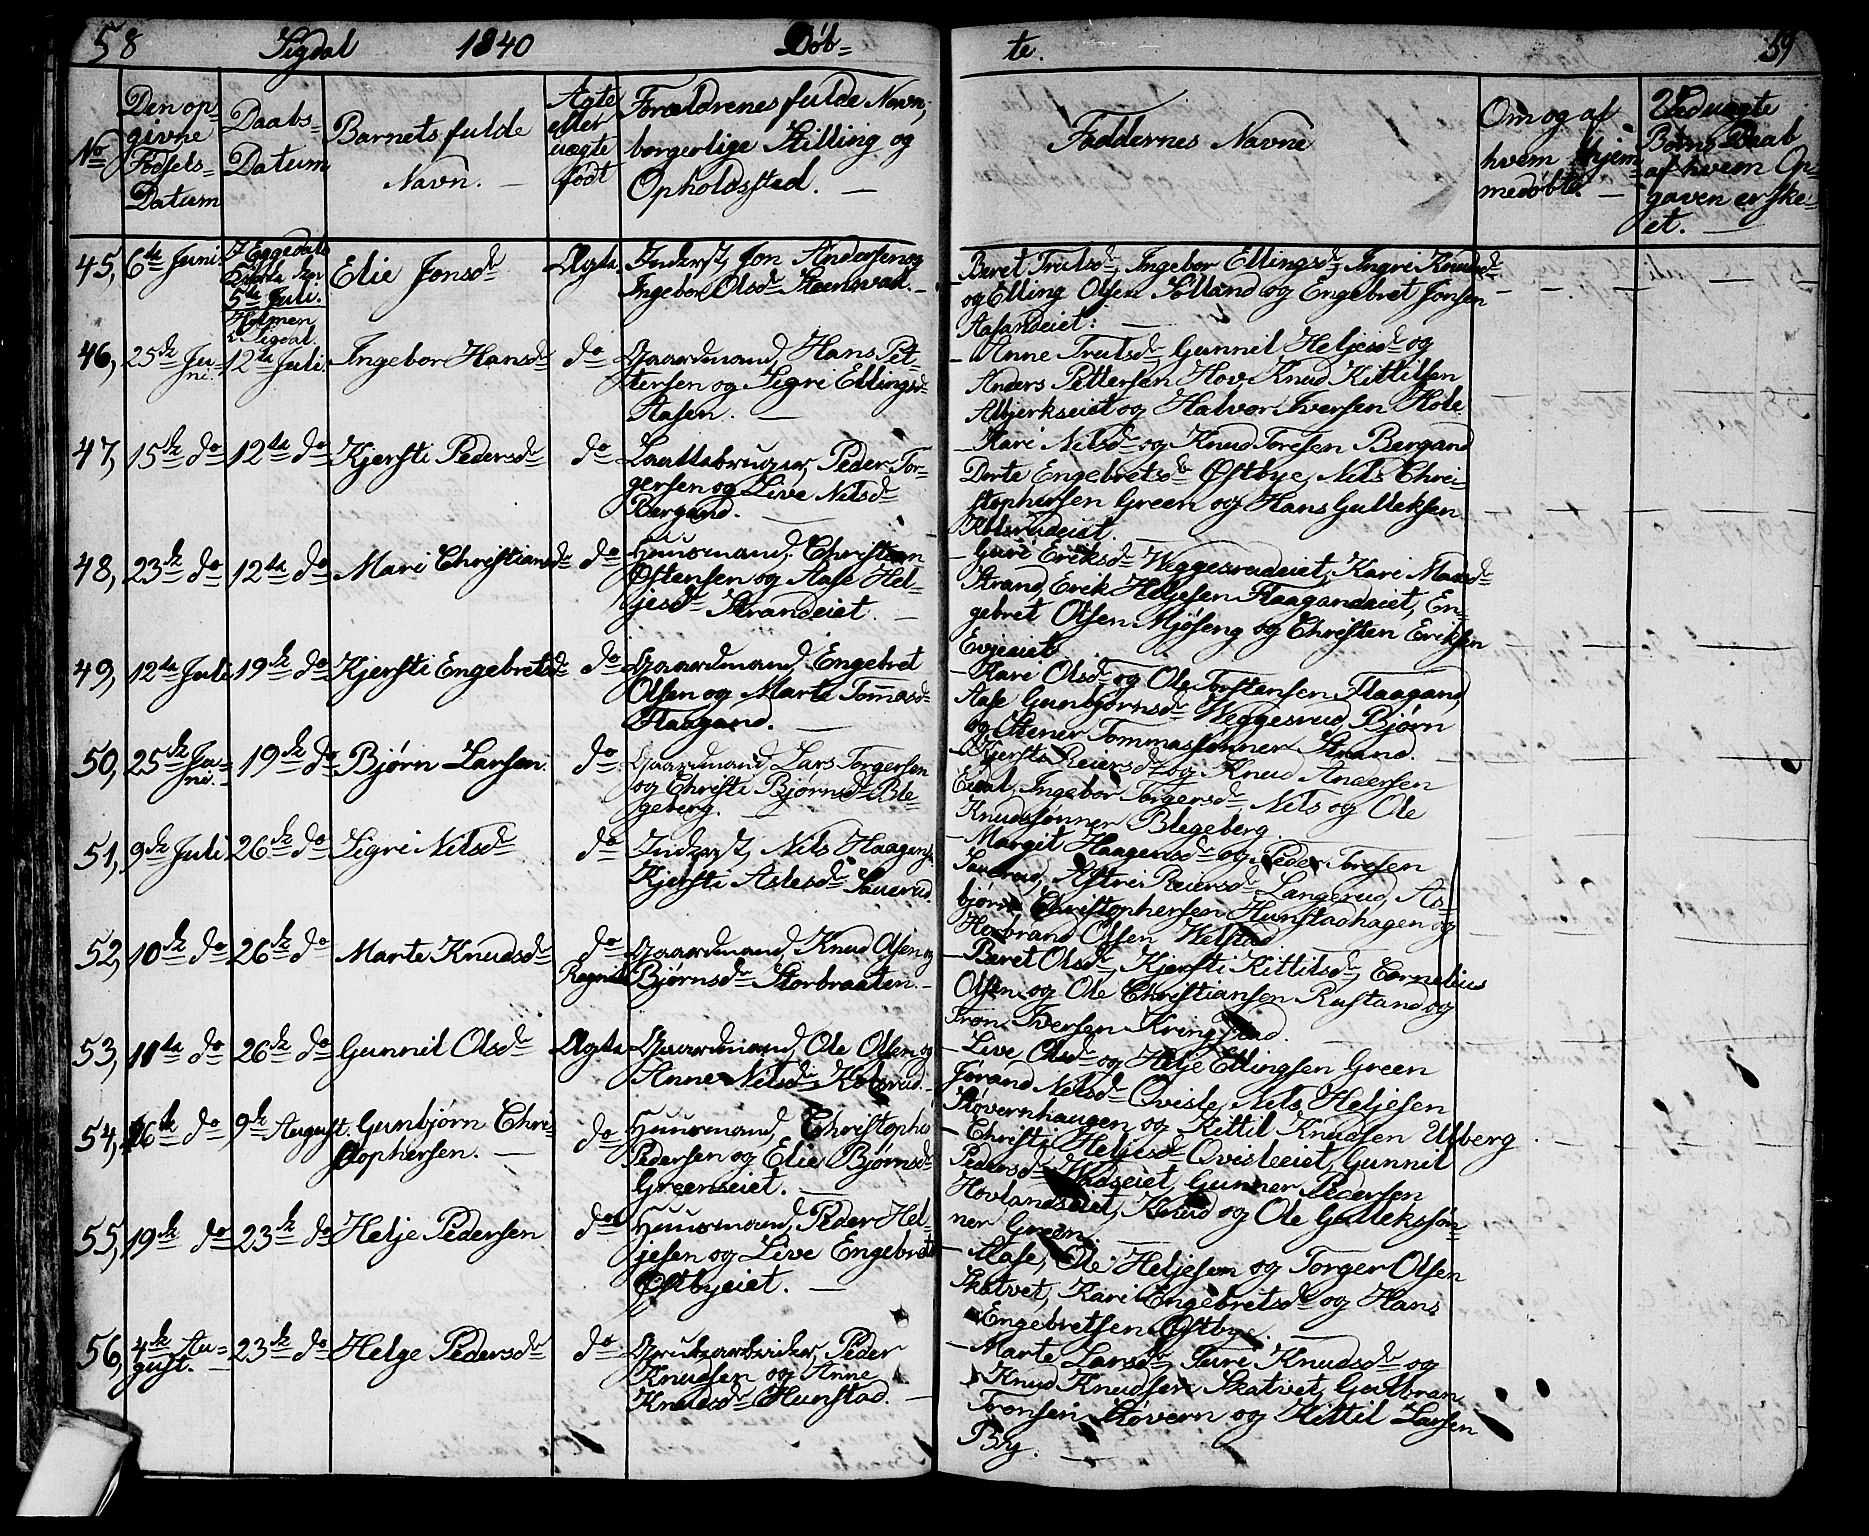 58 Sigdal 1840 Döb=
te. 59
No
Den op-
givne
Fødsels-
Datum
Daabs-
Datum
Barnets fulde
Navn. —
Ægte
eller
uægte
født
Forældrenes fulde Navn,
borgerlige Stilling og
Opholdssted. —
Faddernes Navne
Om og af
hvem hjem-
medøbte. —
Børns Daab
af hvem Op-
gaven er ske-
et. —
45, 6te Juni.
5te Juli.
Holmen
i Sigdal.
Elie Jonsdr
Ægte.
Inderst, Jon Andersen og
Ingebor Olsdr Steensvad. —
Beret Trulsdr, Ingebor Ellingsdr, Ingri Knudsdr
og Elling Olsen Solland og Engebret Jonsen
Aasandeiet: —
46, 25de Ju-
ni.
12te Juli.
Ingebor Hansdr
do
Gaardmand, Hans Pet-
tersen og Sigri Ellingsdr
Aasen. —
— Anne Trulsdr, Gunnil Heljesdr og
Anders Pettersen Hov, Knud Kittilsen
Albjerkseiet og Halvor Iversen Hole
47, 15de do 12te do Kjersti Pedersdr
do
Peder Tor-
gersen og Live Nilsdr
Bergand. —
— Kari Nilsdr og Knud Toresen Bergand
Dorte Engebretsdr Østbye, Nils Chri-
stophersen Green og Hans Gulleksen
48, 23de do 12te do Mari Christiansdr
do
Huusmand, Christian
Østensen og Aase Hel-
jesdr Strandeiet. —
— Guri Eriksdr Weggesrudeiet, Kari Madsdr
Strand, Erik Heljesen Flaagandeiet, En-
gebret Olsen Mjøseng og Christen Eriksen
Evjeeiet.
49, 12te Juli 19de do Kjersti Engebretsdr
do
Gaardmand, Engebret
Olsen og Marte Tomasdr
Flaagand. —
— Kari Olsdr og Ole Torstensen Flaagand,
Aase Gunbjørnsdr Weggesrud, Bjørn
og Stener Tommassønner Strand.
50, 25de Ju-
ni. —
19de do Bjørn Larsen.
do
Gaardmand, Lars Torgersen
og Christi Bjørnsdr Ble-
geberg. —
— Kjersti Reiersdr og Knud Andersen
Eidal, Ingebor Torgersdr, Nils og Ole
Knudssønner Blegeberg.
51, 9de Juli 26de do Sigri Nilsdr
do
Inderst, Nils Haagens.
Kjersti Aslesdr Sauerud.
— Margit Haagensdr og Peder Toresen
Sauerud, Astri Reiersdr Langerud, As-
bjørn Christophersen Hunstadhagen og
Horbrand Olsen Kelstad
52, 10de do 26de do Marte Knudsdr
do
Gaardmand, Knud Olsen og
Ragnild Bjørnsdr Storbraaten. —
— Beret Olsdr, Kjersti Kittilsdr, Cornelius
Olsen og Ole Christiansen Rustand og
Tron Iversen Kringstad.
53, 11te do 26de do Gunnil Olsdr
Ægte
Gaardmand, Ole Olsen og
Anne Nilsdr Kolsrud. —
— Live Olsdr og Helje Ellingsen Green
Jørand Nilsdr Qvisle, Nils Heljesen
Støvernhaugen og Kittil Knudsen Ulberg
54, 16de do 9de August. Gunbjørn Chri-
stophersen. —
do
Huusmand, Christopher
Pedersen og Elie Bjørnsdr
Greenseiet. —
— Christi Heljesdr Qvisleeiet, Gunnil
Pedersdr Wadseiet, Gunner Pedersen
Hovlandseiet, Knud og Ole Gullekssøn-
ner Green.
55, 19de do 23de do Helje Pedersen
do
Huusmand, Peder Hel-
jesen og Live Engebretsdr
Østbyeiet. —
— Aase, Ole Heljesen og Torger Olsen
Skatvet, Kari Engebretsdr og Hans
Engebretsen Østbye. —
56, 4de Au-
gust. —
23de do Helge Pedersdr
do
Grubearbeider, Peder
Knudsen og Anne
Knudsdr Hunstad. —
— Marte Larsdr, Turi Knudsdr og
Knud Knudsen Skatvet, Gulbran
Tronsen Støvern og Kittil Larsen
By. —